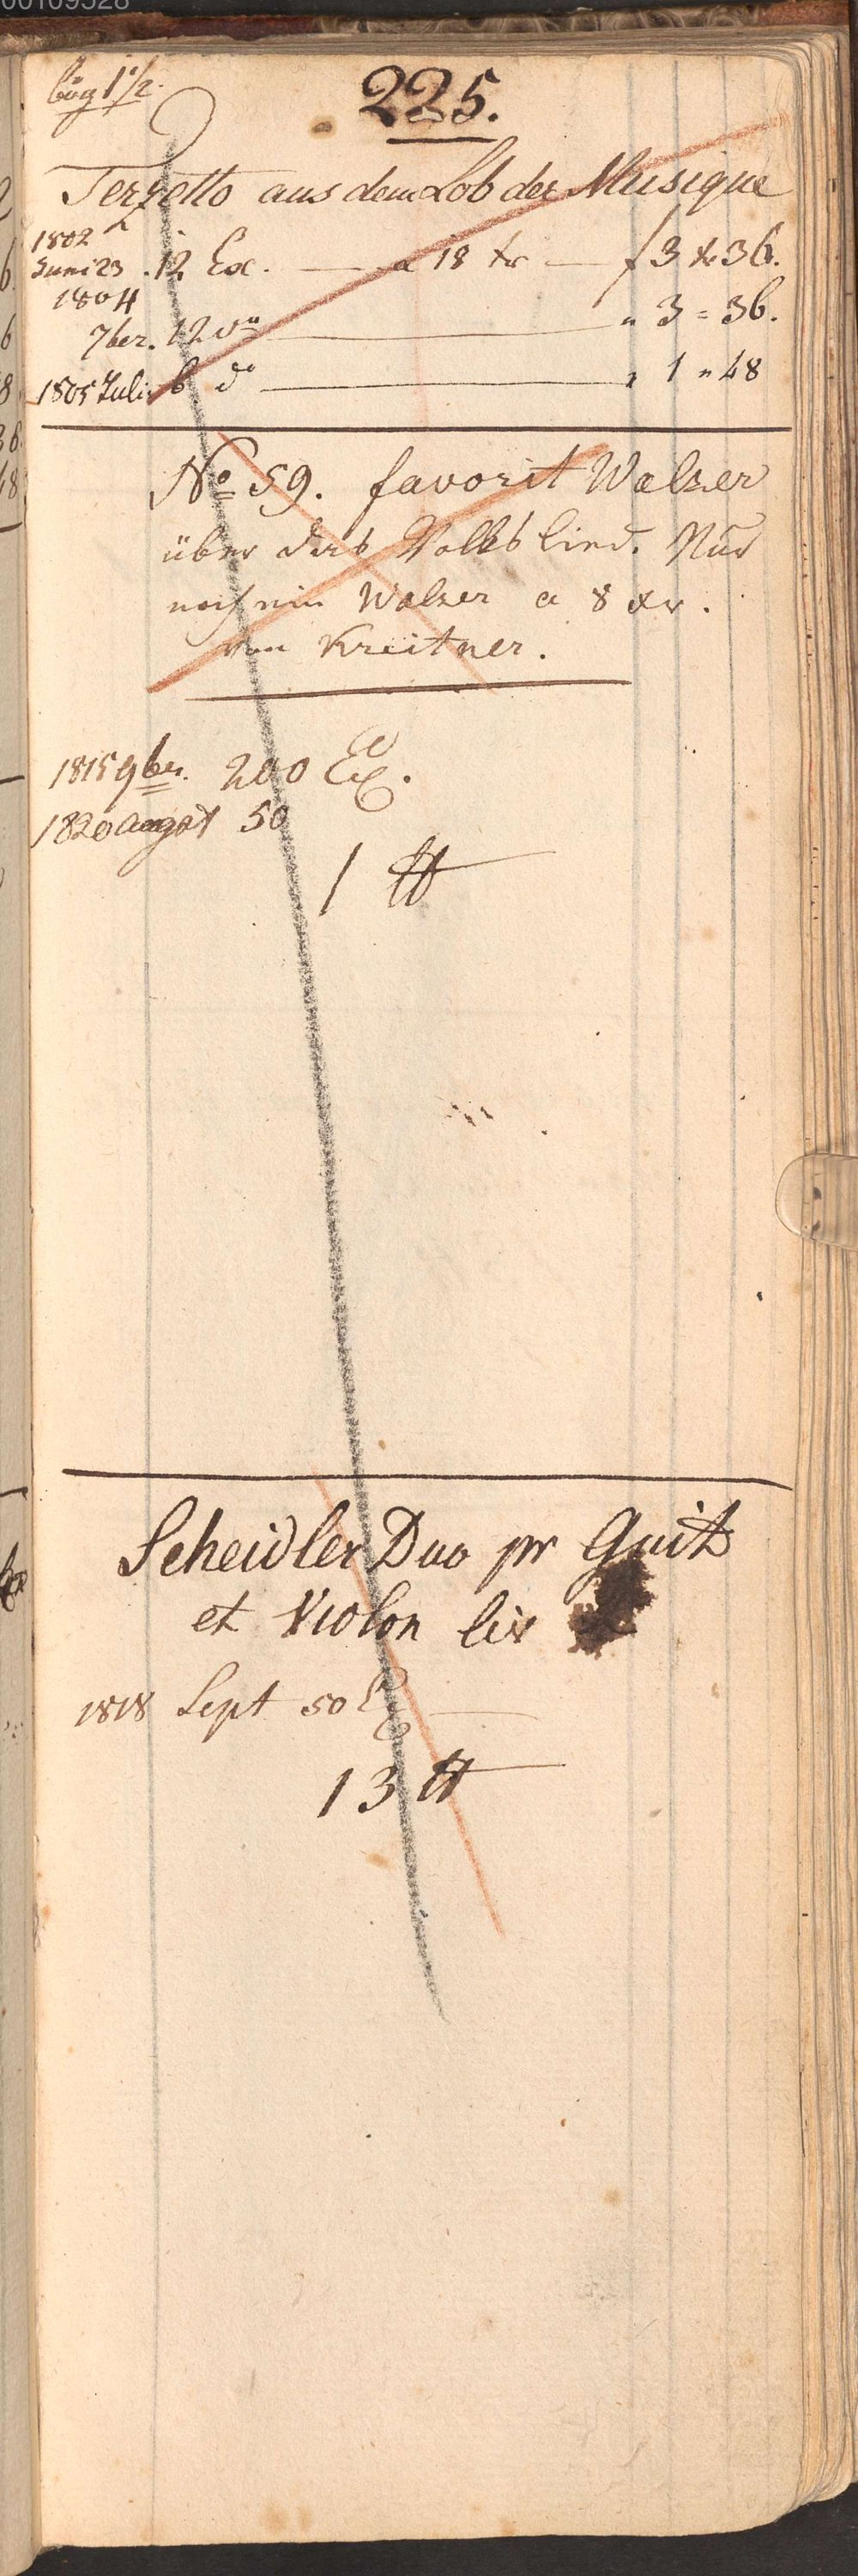 00109528
bög 1 1/2.
225.
Terzetto aus dem Lob der Musique
1802
Juni 23. 12 Ex. — a 18 xr — f 3 xr 36.
1804
7ber. 12 do — " 3 = 36.
1805 Juli 6 do — " 1 " 48
No 59. favorit Walzer
über das Volkslied. Nur
noch ein Walzer a 8 xr.
von Kreitner.
1815 9ber. 200 Ex.
1820 Augst 50
1 ℔
Scheidler Duo pr Guit
et Violon liv
1818 Sept 50 Ex
13 ℔